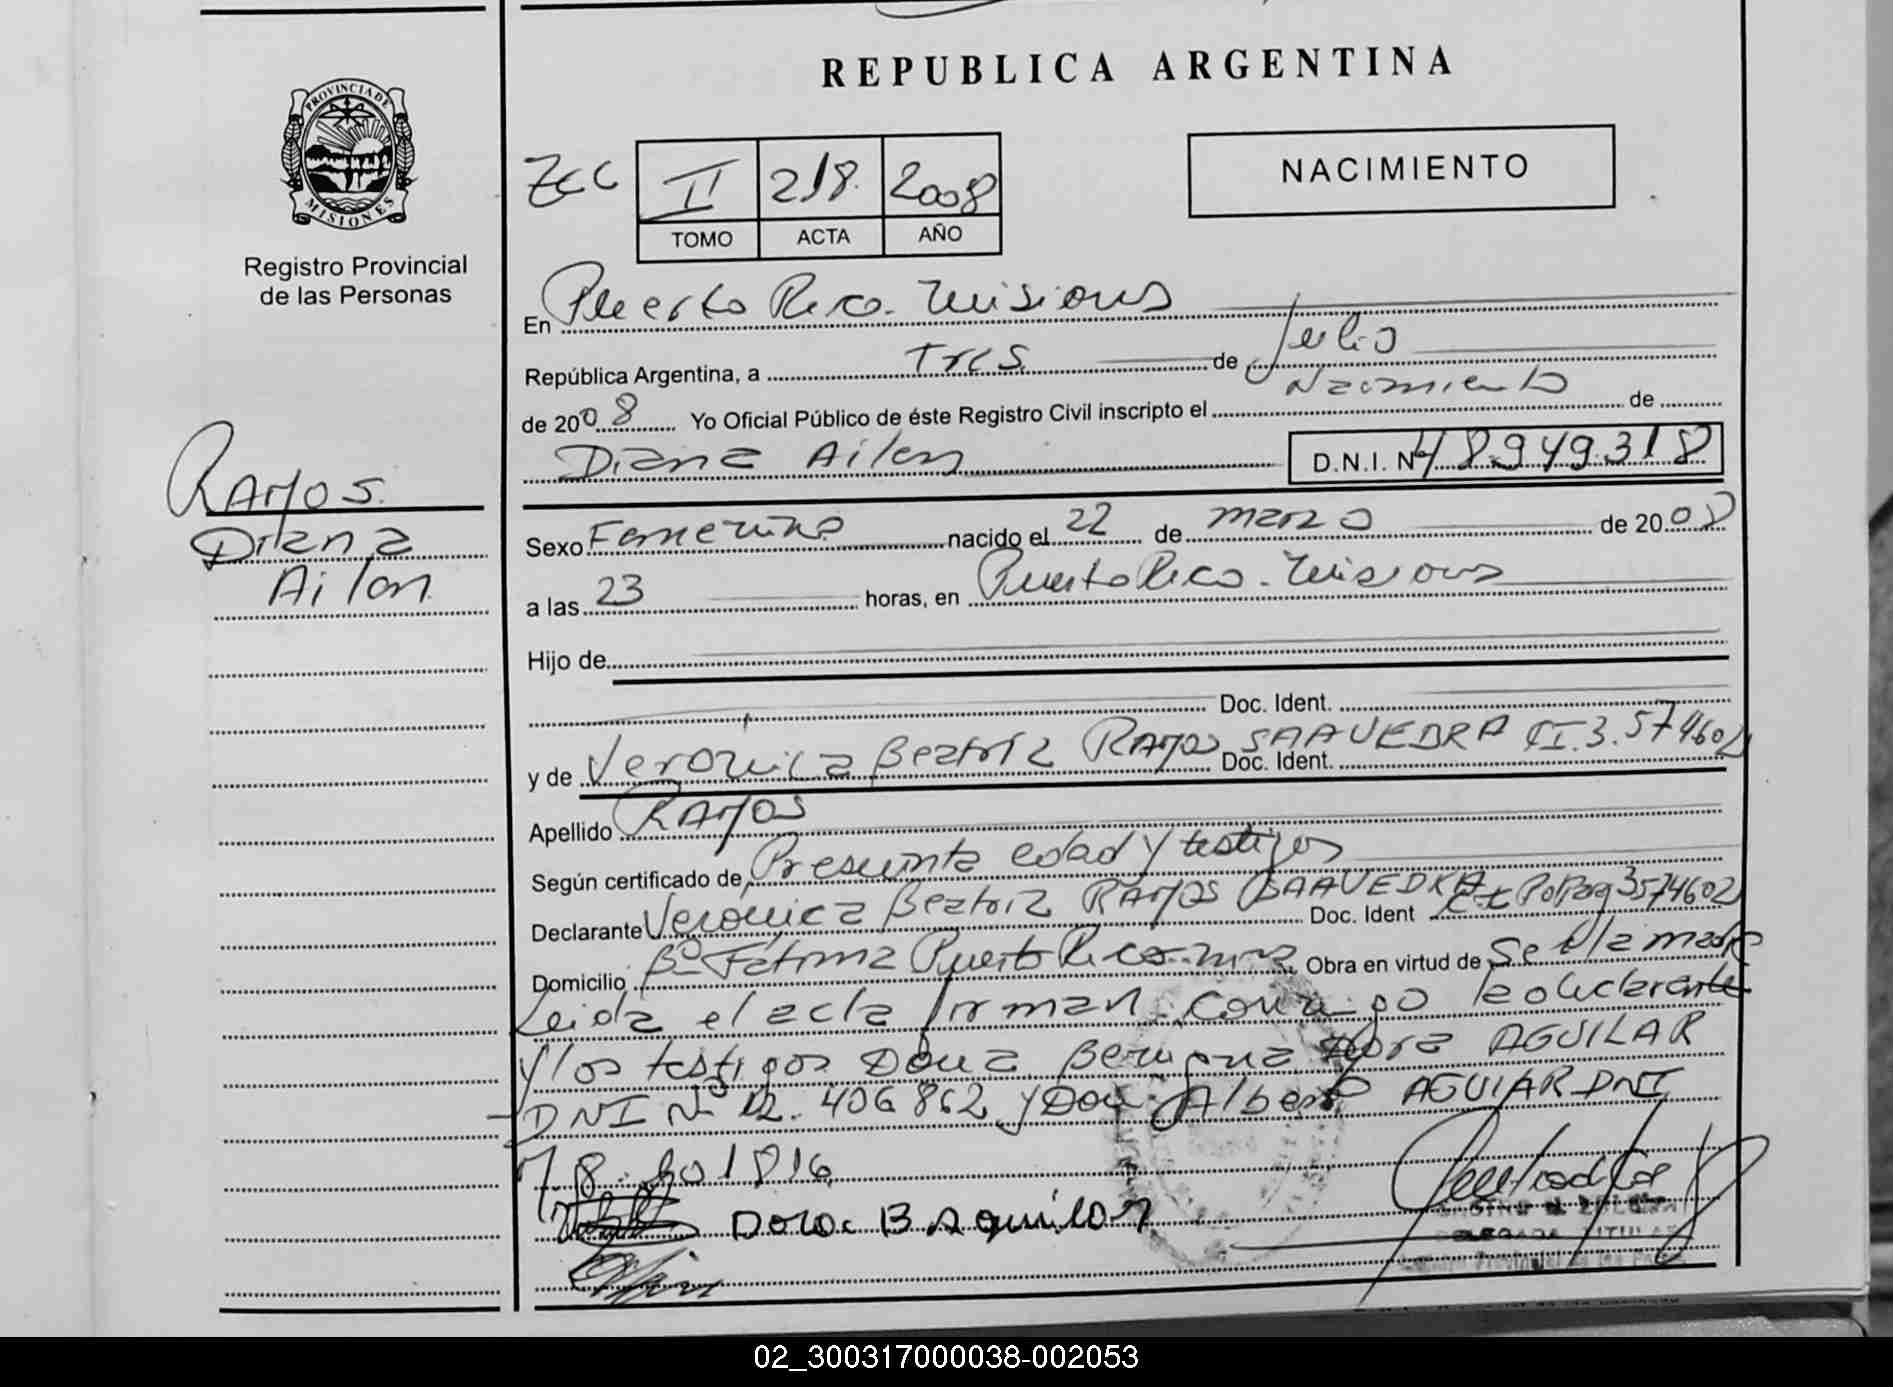 REPUBLICA ARGENTINA
PROVINCIA DE
MISIONES
Registro Provincial
de las Personas
Zcc II 218. 2008
TOMO ACTA AÑO
NACIMIENTO
En Puerto Rico. Misiones
República Argentina, a Tres de Julio
de 2008 Yo Oficial Público de éste Registro Civil inscripto el Nacimiento de
Diana Ailen D.N.I. Nº 48.949.318
RAMOS.
Diana
Ailen
Sexo Femenino nacido el 22 de marzo de 2008
a las 23 horas, en Puerto Rico. Misiones
Hijo de
Doc. Ident.
y de Verónica Beatriz RAMOS SAAVEDRA Doc. Ident. CI.3.574602
Apellido RAMOS
Según certificado de Presunta edad y testigos
Declarante Verónica Beatriz RAMOS SAAVEDRA Doc. Ident 3574602
Domicilio Bº Fátima Puerto Rico Obra en virtud de Se la madre
Leida el acta firman conmigo la declarante
y los testigos Doña Benigna Dora AGUILAR
DNI Nº 12.406862 y Don Alberto AGUIAR DNI
Nº 8. 1816
Dora B Aguilar
DELEGADA TITULAR
02_300317000038-002053